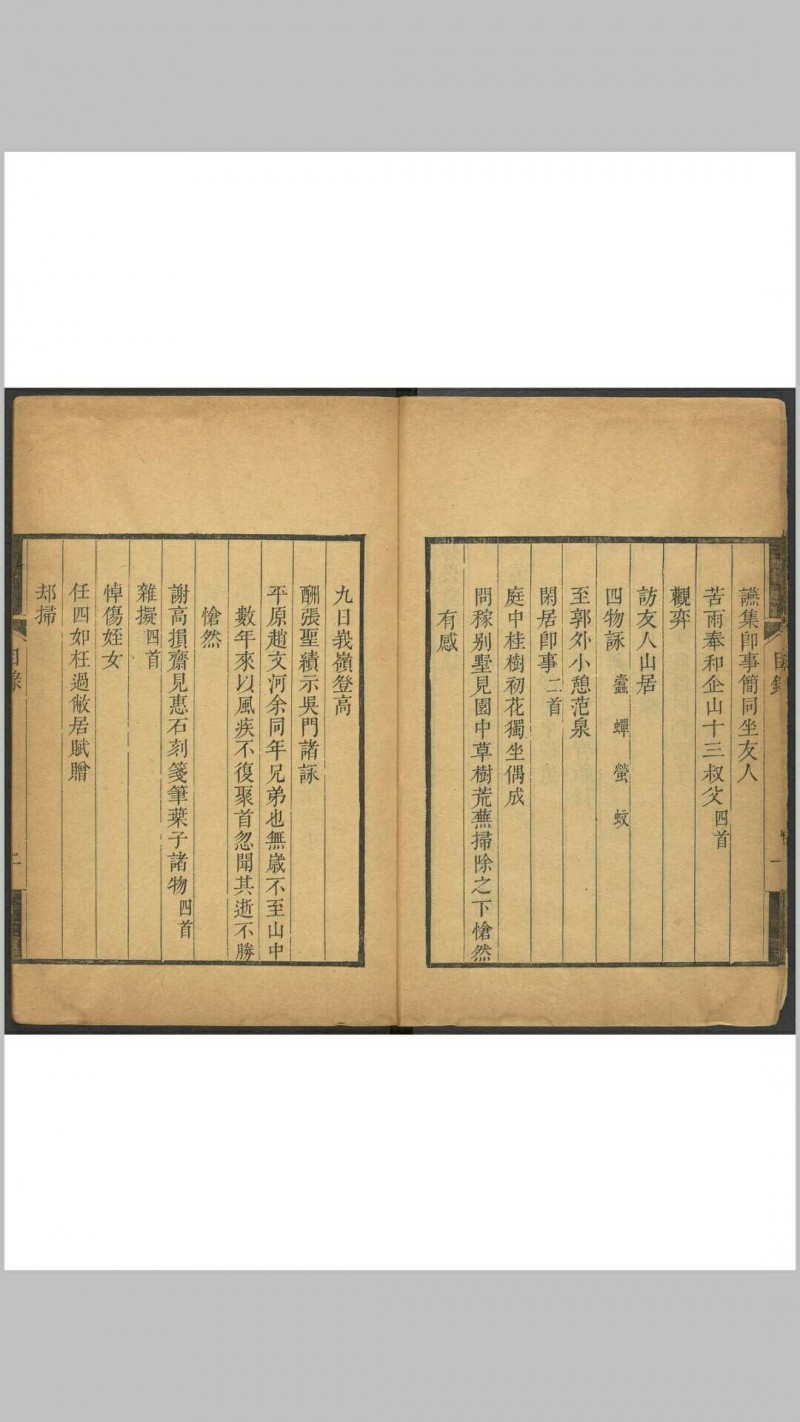 讌集卽事簡同坐友人
苦雨奉和企山十三叔父 四首
觀弈
訪友人山居
四物詠 蠹 蟬 螢 蚊
至郭外小憩范泉
閑居卽事 二首
庭中桂樹初花獨坐偶成
問稼别墅見園中草樹荒蕪掃除之下愴然
有感
一
九日峩嶺登高
酬張聖績示吳門諸詠
平原趙文河余同年兄弟也無歲不至山中
數年來以風疾不復聚首忽聞其逝不勝
愴然
謝高損齋見惠石刻箋筆葉子諸物 四首
雜擬 四首
悼傷姪女
任四如枉過敝居賦贈
却掃
目錄
二